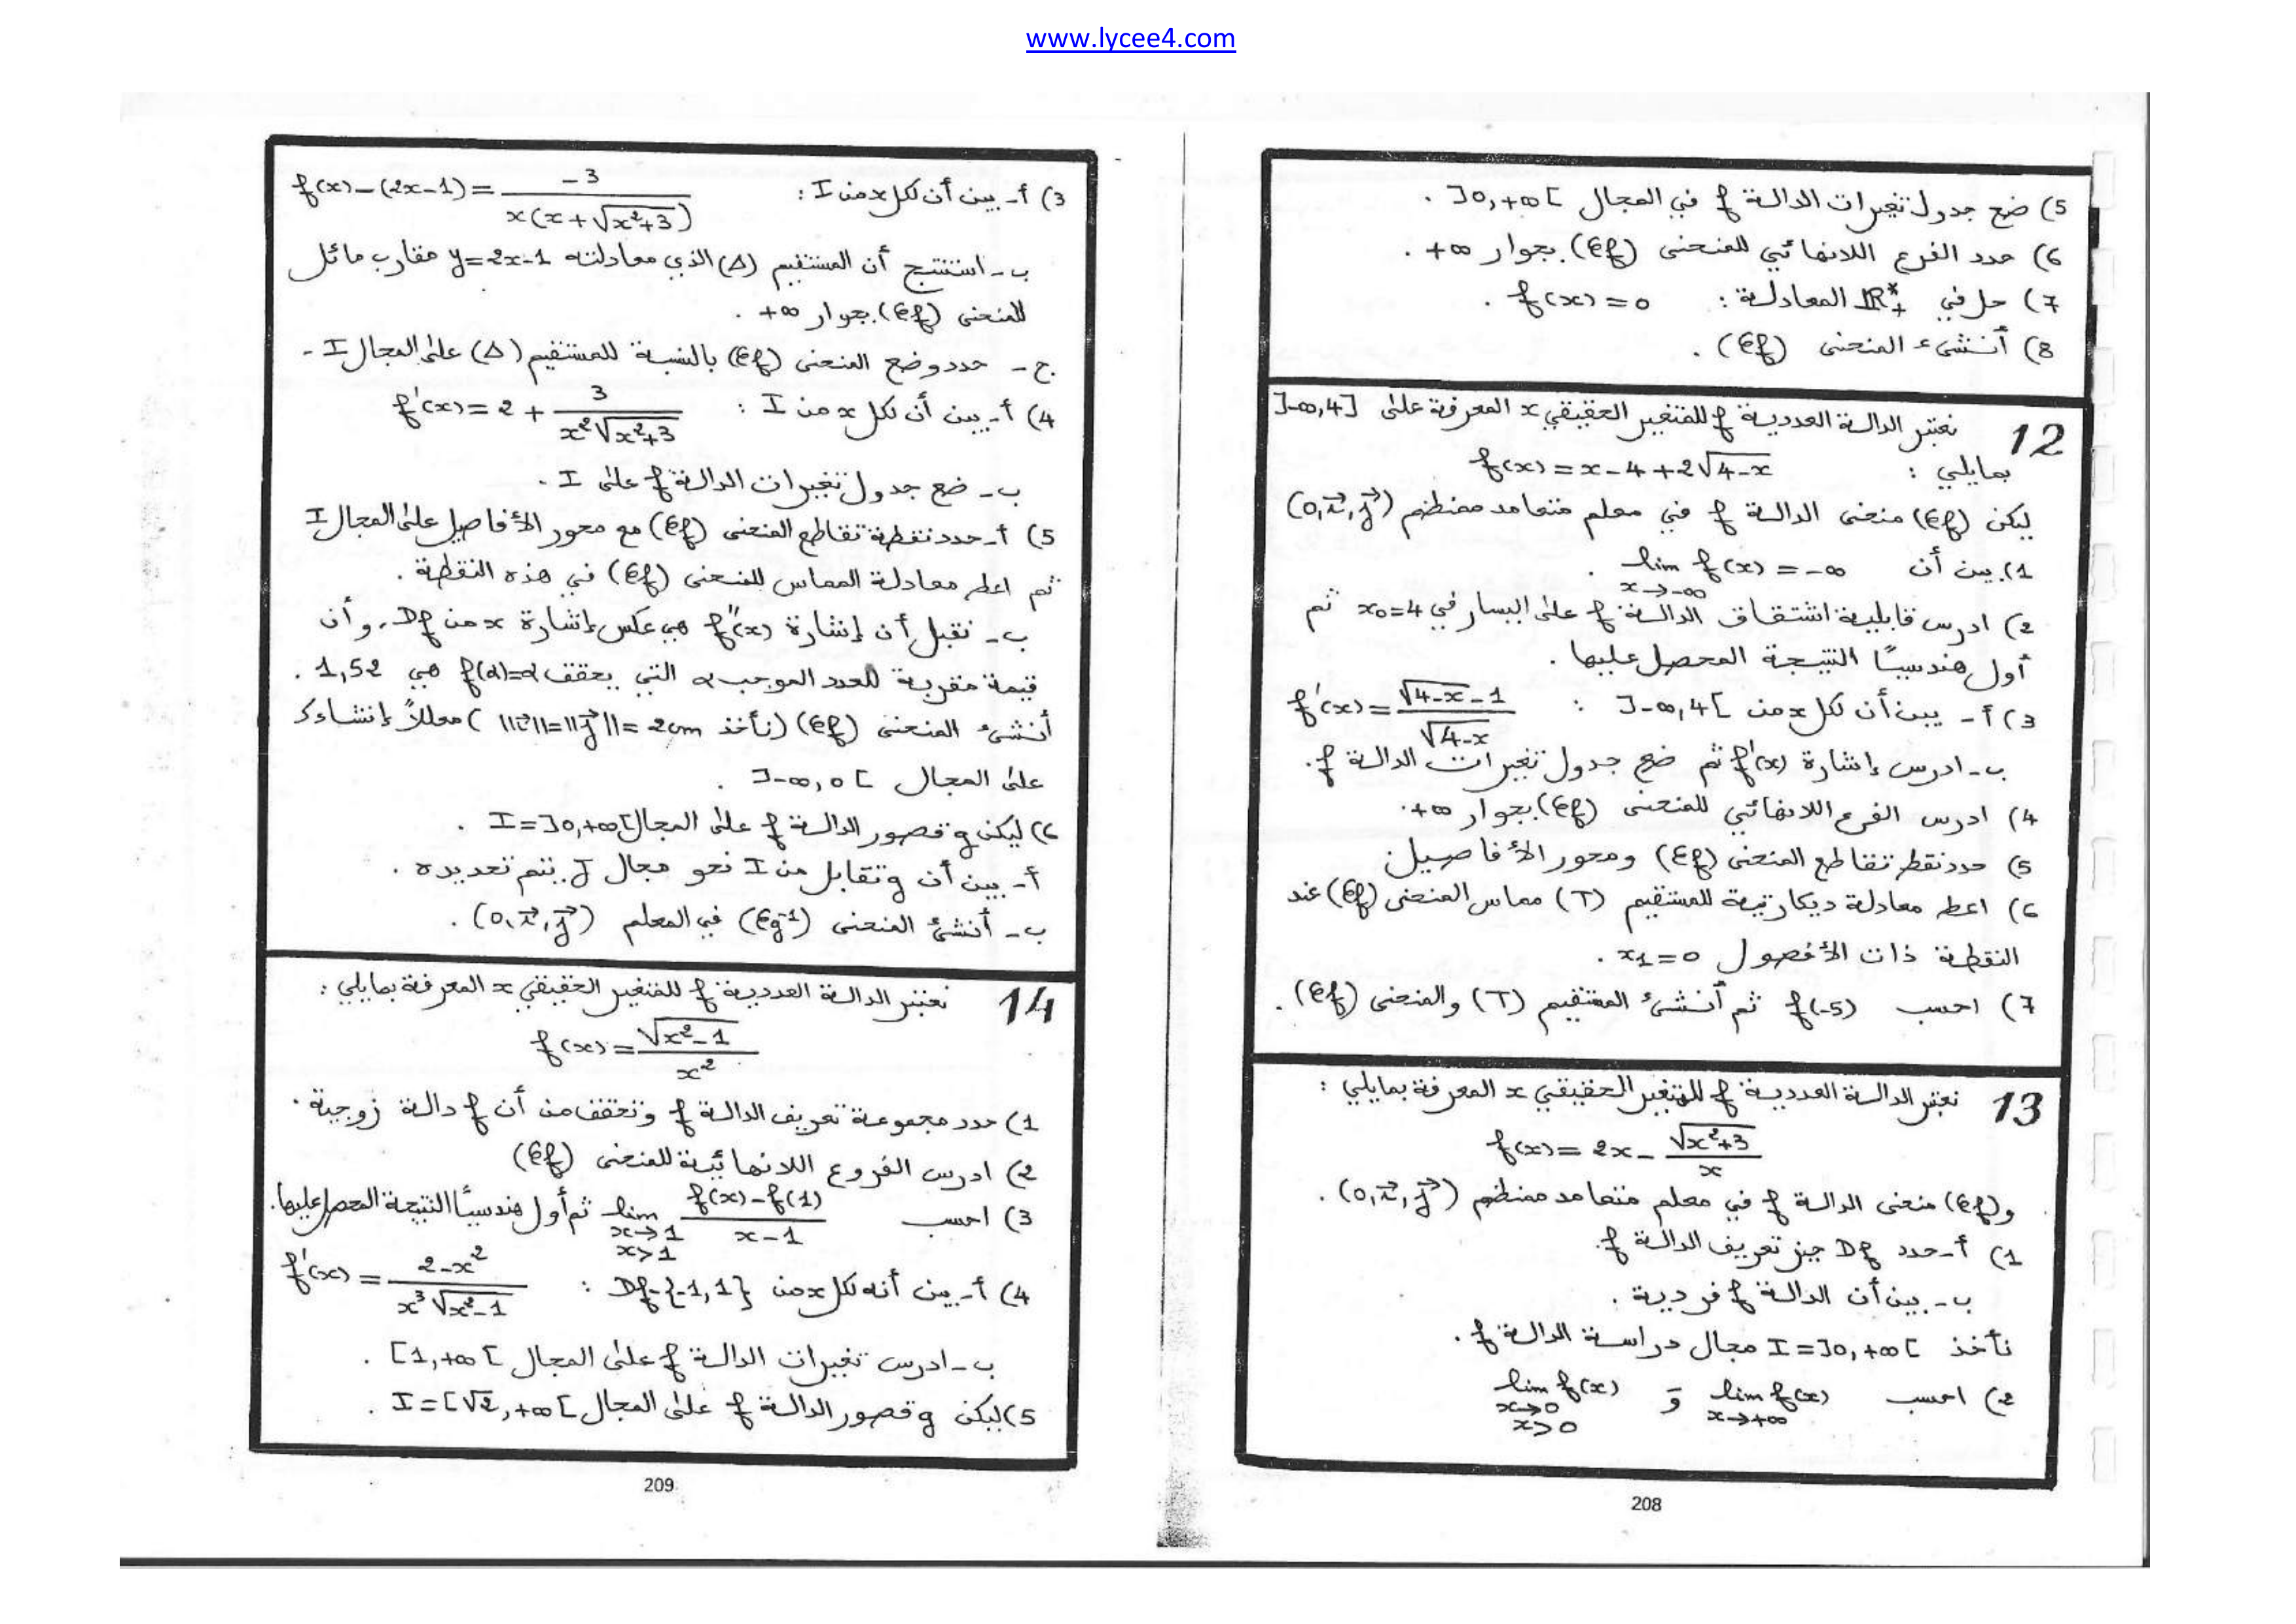 www.lycee4.com
5) ضع جدول تغيرات الدالة f في المجال ]0,+∞[ .
6) حدد الفرع اللانهائي للمنحنى (Cf) بجوار +∞ .
7) حل في IR*+ المعادلة : f(x)=0 .
8) أنشىء المنحنى (Cf) .
12 نعتبر الدالة العددية f للمتغير الحقيقي x المعرفة على ]-∞,4]
بمايلي : f(x)=x-4+2√(4-x)
ليكن (Cf) منحنى الدالة f في معلم متعامد ممنظم (0,i⃗,j⃗)
1) بين أن lim f(x)=-∞ .
x→-∞
2) ادرس قابلية اشتقاق الدالة f على اليسار في x₀=4 ثم
أول هندسيًا النتيجة المحصل عليها .
3) أ- يبن أن لكل x من ]-∞,4[ : f'(x)=(√(4-x)-1)/√(4-x)
ب- ادرس إشارة f'(x) ثم ضع جدول تغيرات الدالة f.
4) ادرس الفرع اللانهائي للمنحنى (Cf) بجوار +∞.
5) حدد نقط تقاطع المنحنى (Cf) ومحور الأفاصيل
6) اعط معادلة ديكارتية للمستقيم (T) مماس المنحنى (Cf) عند
النقطة ذات الأفصول x₁=0 .
7) احسب f(-5) ثم أنشىء المستقيم (T) والمنحنى (Cf) .
13 نعتبر الدالة العددية f للمتغير الحقيقي x المعرفة بمايلي :
f(x)=2x-√(x²+3)/x
و(Cf) منحنى الدالة f في معلم متعامد ممنظم (0,i⃗,j⃗) .
1) أ- حدد Df حيز تعريف الدالة f.
ب- بين أن الدالة f فردية .
نأخذ I=]0,+∞[ مجال دراسة الدالة f.
2) احسب lim f(x) و lim f(x)
x→+∞ x→0
x>0
208
3) أ- بين أن لكل x من I : f(x)-(2x-1)=-3/(x(x+√(x²+3)))
ب- استنتج أن المستقيم (Δ) الذي معادلته y=2x-1 مقارب مائل
للمنحنى (Cf) بجوار +∞ .
ج- حدد وضع المنحنى (Cf) بالنسبة للمستقيم (Δ) على المجال I .
4) أ- بين أن لكل x من I : f'(x)=2+3/(x²√(x²+3))
ب- ضع جدول تغيرات الدالة f على I .
5) أ- حدد نقطة تقاطع المنحنى (Cf) مع محور الأفاصيل على المجال I
ثم اعط معادلة المماس للمنحنى (Cf) في هذه النقطة .
ب- نقبل أن إشارة f''(x) هي عكس إشارة x من Df، وأن
قيمة مقربة للعدد الموجب α التي يحقق f(α)=α هي 1,52 .
أنشىء المنحنى (Cf) (نأخذ ||i⃗||=||j⃗||=2cm) معللاً إنشاءك
على المجال ]-∞,0[ .
6) ليكن g قصور الدالة f على المجال I=]0,+∞[ .
أ- بين أن g تقابل من I نحو مجال J يتم تحديده .
ب- أنشئ المنحنى (Cg⁻¹) في المعلم (0,i⃗,j⃗) .
14 نعتبر الدالة العددية f للمتغير الحقيقي x المعرفة بمايلي :
f(x)=√(x²-1)/x²
1) حدد مجموعة تعريف الدالة f وتحقق من أن f دالة زوجية .
2) ادرس الفروع اللانهائية للمنحنى (Cf)
3) احسب lim (f(x)-f(1))/(x-1) ثم أول هندسيًا النتيجة المحصل عليها.
x→1
x>1
4) أ- بين أنه لكل x من Df-{-1,1} : f'(x)=(2-x²)/(x³√(x²-1))
ب- ادرس تغيرات الدالة f على المجال [1,+∞[ .
5) ليكن g قصور الدالة f على المجال I=[√2,+∞[ .
209